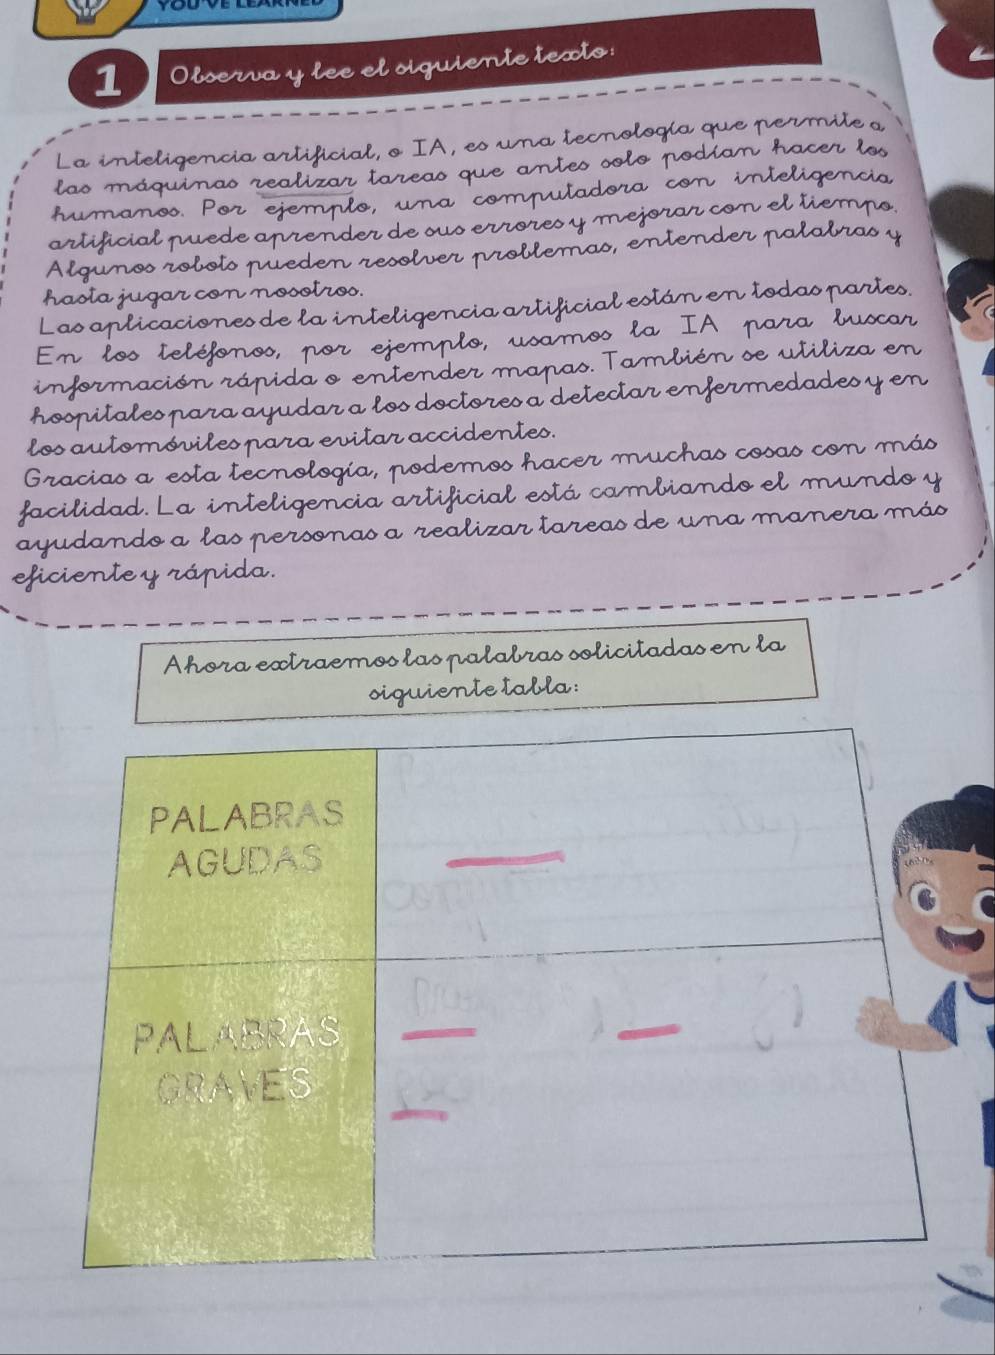 YOU'VE LEARNED
1 Observa y lee el siguiente texto:
La inteligencia artificial, o IA, es una tecnología que permite a
las máquinas realizar tareas que antes solo podían hacer los
humanos. Por ejemplo, una computadora con inteligencia
artificial puede aprender de sus errores y mejorar con el tiempo.
Algunos robots pueden resolver problemas, entender palabras y
hasta jugar con nosotros.
Las aplicaciones de la inteligencia artificial están en todas partes.
En los teléfonos, por ejemplo, usamos la IA para buscar
información rápida o entender mapas. También se utiliza en
hospitales para ayudar a los doctores a detectar enfermedades y en
los automóviles para evitar accidentes.
Gracias a esta tecnología, podemos hacer muchas cosas con más
facilidad. La inteligencia artificial está cambiando el mundo y
ayudando a las personas a realizar tareas de una manera más
eficiente y rápida.
Ahora extraemos las palabras solicitadas en la
siguiente tabla:
PALABRAS
AGUDAS
PALABRAS
GRAVES